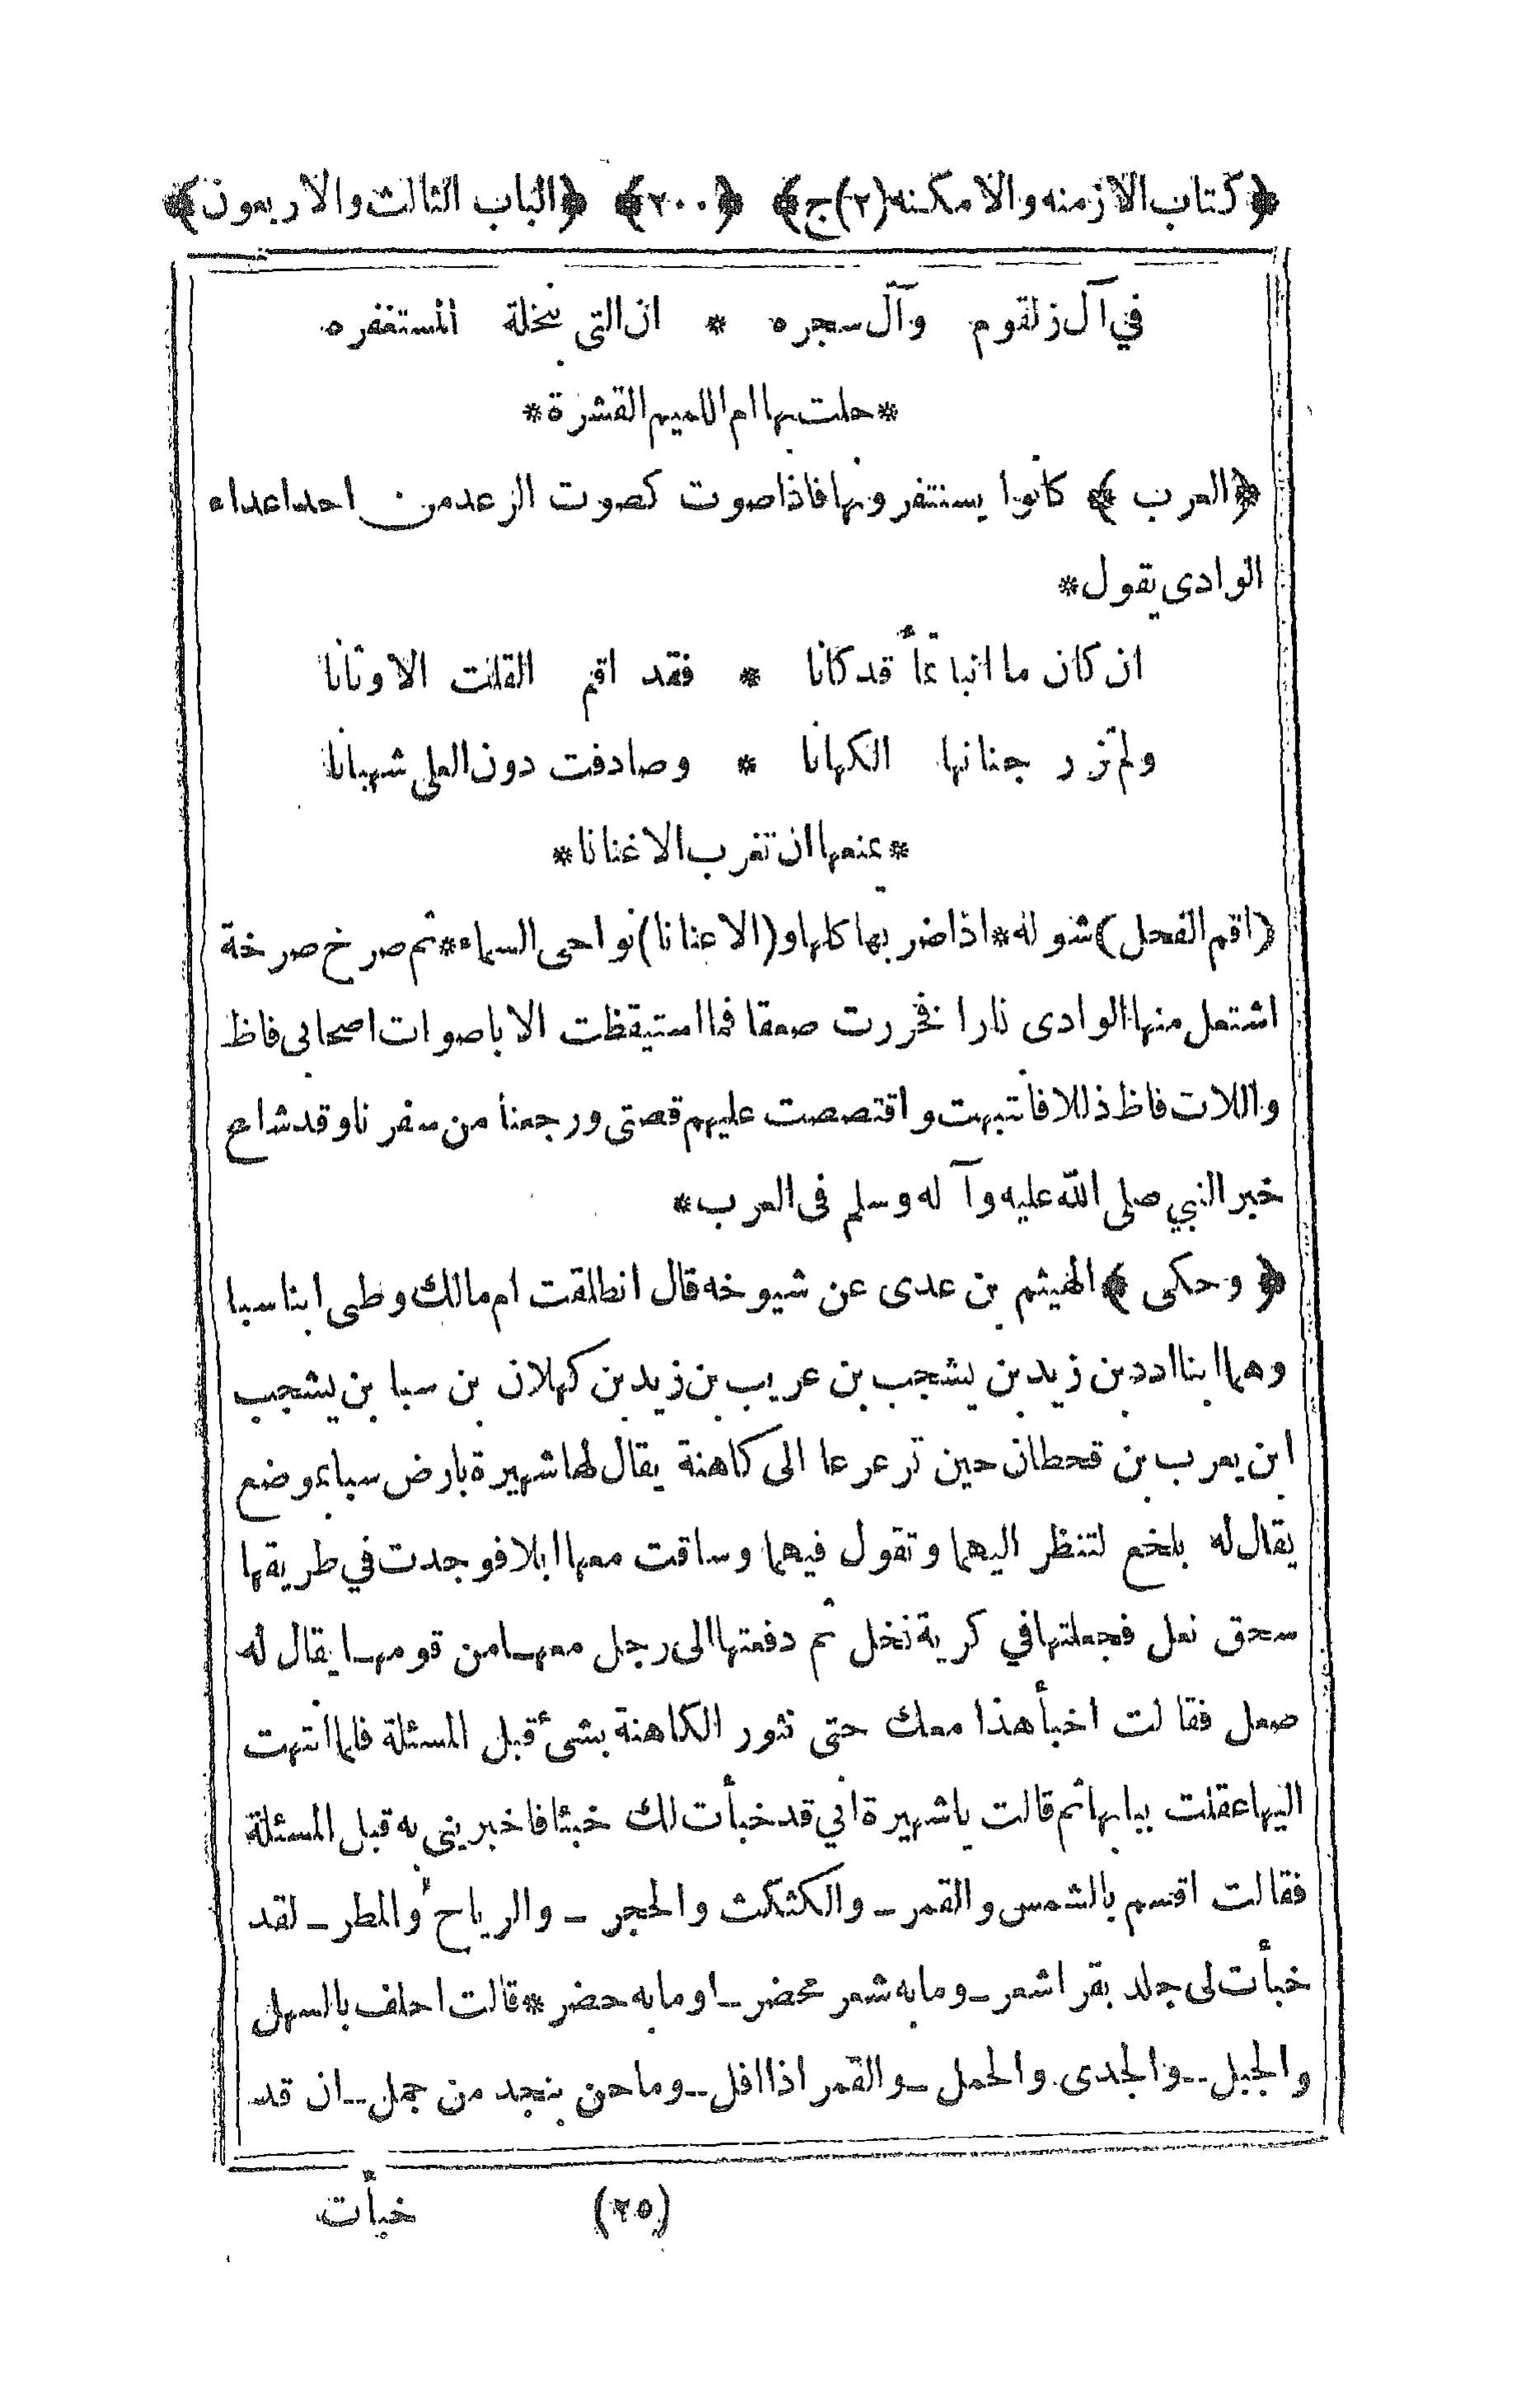 ﴿كتاب الازمنه والامكنه (٢) ج﴾ ﴿٢٠٠﴾ ﴿الباب الثالث والاربعون﴾
في آل زلقوم وآل سجره * ان التى بنخلة المستغفره
*حلت بها ام اللهيم القشرة*
﴿العرب﴾ كانوا يستنفرونها فاذا صوت كصوت الرعد من احد اعداء
الوادى يقول*
ان كان ما انبأتما قد كانا * فقد اقم القلت الاوثانا
ولم تزر جنانها الكهانا * وصادفت دون العلى شهبانا
*يمنعها ان تقرب الاعنانا*
(اقم الفحل) شوله*اذا ضربها كلها و(الاعنانا) نواحى السماء*ثم صرخ صرخة
اشتعل منها الوادى نارا فخررت صعقا فما استيقظت الا باصوات اصحابى فاظ
واللات فاظ ذللا فانتبهت واقتصصت عليهم قصتى ورجعنا من سفرنا وقد شاع
خبر النبي صلى الله عليه وآله وسلم فى العرب*
﴿وحكى﴾ الهيثم بن عدى عن شيوخه قال انطلقت ام مالك وطى ابنا سبا
وهما ابنا ادد بن زيد بن يشجب بن عريب بن زيد بن كهلان بن سبا بن يشجب
ابن يعرب بن قحطان حين ترعرعا الى كاهنة يقال لها شهيرة بارض سبا بموضع
يقال له بلخع لتنظر اليهما وتقول فيهما وساقت معها ابلا فوجدت في طريقها
سحق نعل فجعلتها في كربة نخل ثم دفعتها الى رجل معهـا من قومهـا يقال له
صعل فقالت اخبأ هذا معك حتى نثور الكاهنة بشىء قبل المسئلة فلما انتهت
اليها عقلت ببابها ثم قالت يا شهيرة اني قد خبأت لك خبئا فاخبرينى به قبل المسئلة
فقالت اقسم بالشمس والقمر ـ والكثكث والحجر ـ والرياح والمطر ـ لقد
خبأت لى جلد بقر اشعر ـ وما به شعر محضر ـ او ما به حضر*قالت احلف بالسهل
والجبل ـ والجدى والحمل ـ والقمر اذا افل ـ وما حن بنجد من جمل ـ ان قد
(٢٥) خبأت